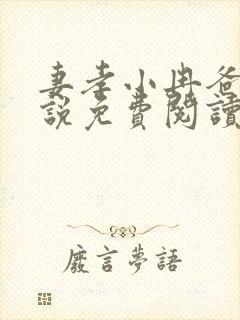 妻孝小冉爸
說免費閱讀
廢言夢語